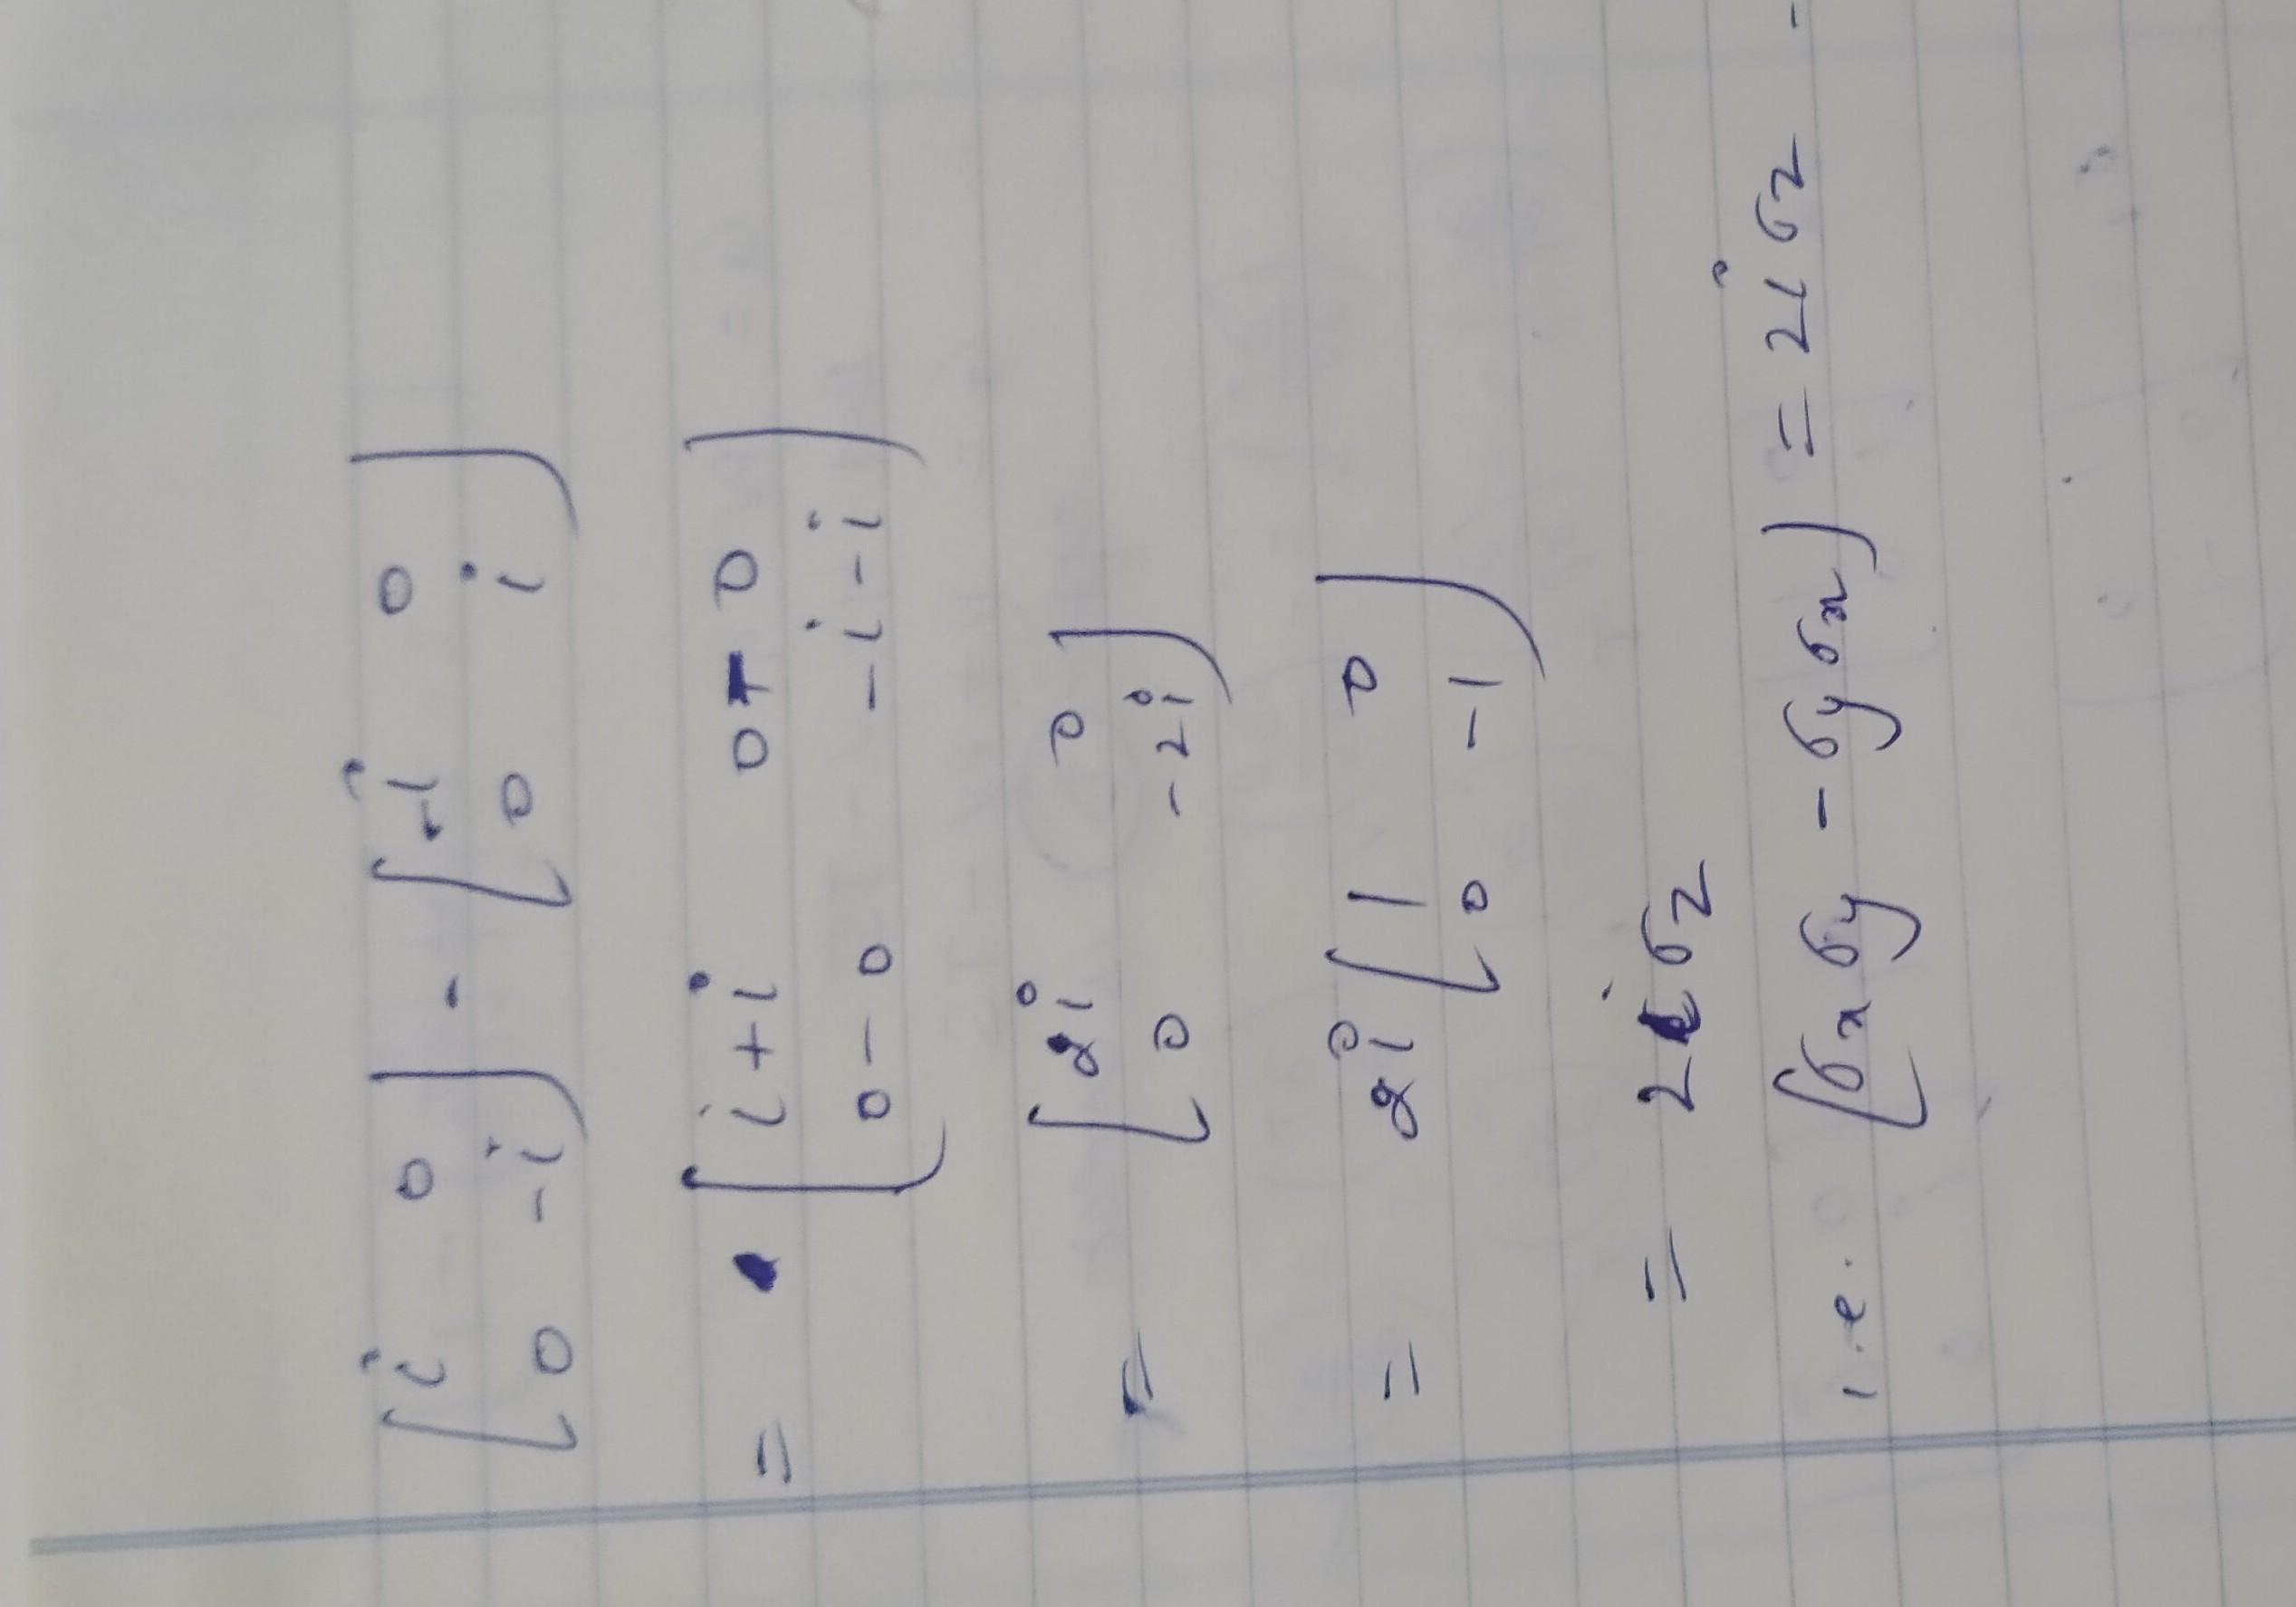 [i 0] - [-i 0]
[0 -i] [0 i]
= [i+i 0-0]
[0-0 -i-i]
= [2i 0]
[0 -2i]
= 2i [1 0]
[0 -1]
= 2iσz
i.e. [σxσy - σyσx] = 2iσz -